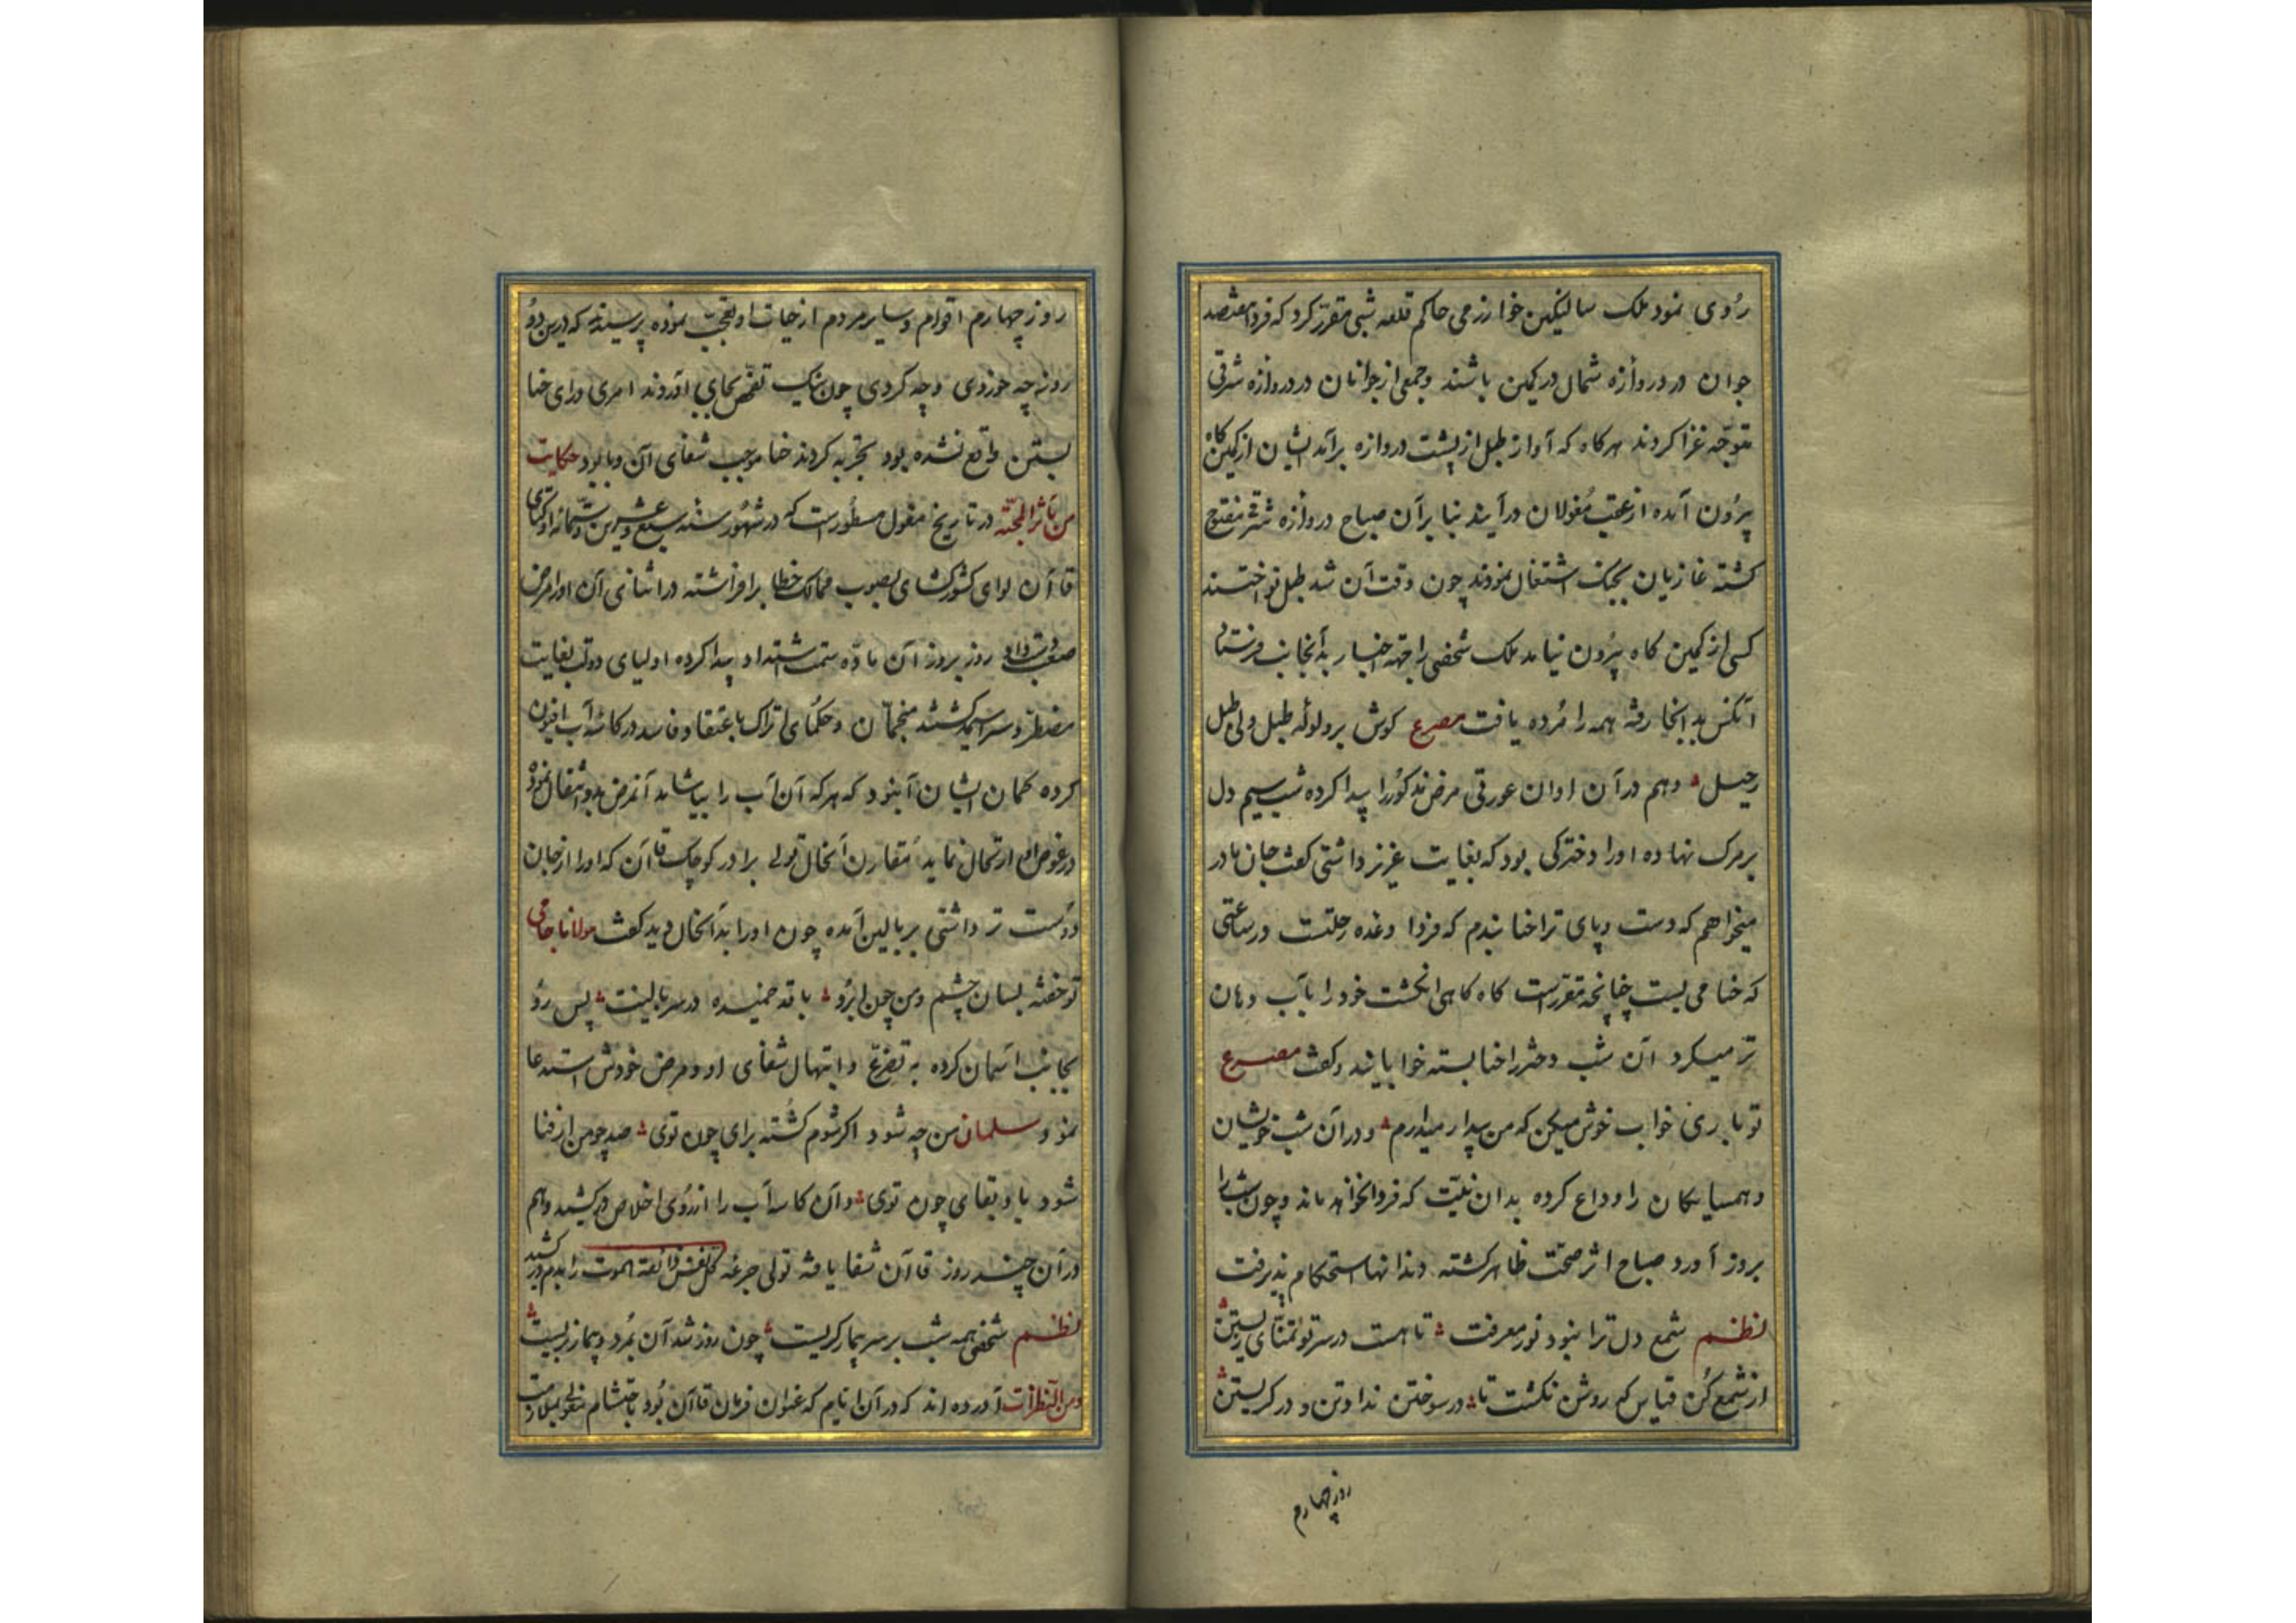 رُوی نمود ملک سالنکین خوارزمی حاکم قلعه شبی مقرّر کرد که فردا هفتصد
جوان در دروازه شمال در کمین باشند و جمعی از جوانان در دروازه شرقی
متوجّه غزا کردند هرکاه که آواز طبل از پشت دروازه برآید ایشان از کمین کاه
بیرُون آمده از عقب مُغولان درآیند بنا برآن صباح دروازه شرقی مفتوح
کشته غازیان بجنک اشتغال نمودند چون وقت آن شد طبل نواختند
کسی از کمین کاه بیرُون نیامد ملک شخصی را جهة اخبار بدآنجانب فرستاد
آنکس بدانجا رفته همه را مُرده یافت مصرع کوش بر ولوله طبل ولی طبل
رحیل وهم در آن اوان عورتی مرض مذکوُر را پیدا کرده شب سیم دل
بر مرک نهاده او را دخترکی بود که بغایت عزیز داشتی کفت جان مادر
میخواهم که دست و پای ترا حنا بندم که فردا وعده رحلتست در ساعتی
که حنا می بست چنانچه مقرّرست کاه کاهی انکشت خود را بآب دهان
تر میکرد آن شب دختر را حنا بسته خوابانید و کفت مصرع
تو باری خواب خوش میکن که من بیدار میدارم و در آن شب خویشان
و همسایکان را وداع کرده بدان نیّت که فردا نخواهد ماند و چون شب را
بروز آورد صباح اثر صحّت ظاهر کشته دندانها استحکام پذیرفت
نظم شمع دل ترا نبود نور معرفت تا هست در سر تو تمنّای زیستن
از شمع کن قیاس که روشن نکشت تا در سوختن نداد تن و در کریستن
روز چهارم
روز چهارم اقوام و سایر مردم از حیات او تعجّب نموده پرسیدند که درین دو
روز چه خوردی و چه کردی چون نیک تفحّص بجای آوردند امری ورای حنا
بستن واقع نشده بود تجربه کردند حنا موجب شفای آن وبا بود حکایت
در تاریخ مغول مسطُورست که در شهُور سنه سبع عشرین و ستمائه اوکتای
قاآن لوای کشورکشای بصوب ممالک خطا برافراشته در اثنای آن او را مرض
صعب دست داد روز بروز آن مادّه سمت اشتداد پیدا کرده اولیای دولت بغایت
مضطرّ و سراسیمه کشتند منجّمان و حکمُای اتراک باعتقاد فاسد در کاسه آب افیون
کرده کمان ایشان آنبود که هرکه آن آب را بیاشامد آنمرض بدو انتقال نموده
ارتحال نماید مُقارن آنحال تولی برادر کوچک قاآن که او را از جان
دوست تر داشتی بر بالین آمده چون او را بدآنحال دید کفت مولانا جامی
تو خفته بسان چشم و من چون ابرُو با قد خمیده در سر بالینت پس رو
بجانب آسمان کرده به تضرّع و ابتهال شفای او و مرض خودش استدعا
نمود سلمان من چه شود اکر شوم کُشته برای چون توی صد چو من از فنا
شود باد بقای چون توی و آن کاسه آب را از رُوی اخلاص درکشید و هم
در آن چند روز قاآن شفا یافته تولی جرعه کل نفس ذائقة الموت را بدم درکشید
نظم شخصی همه شب بر سر بیمار کریست چون روز شد آن بمُرد و بیمار بزیست
آورده اند که در آن ایّام که عنوان فرمان قاآن بُود